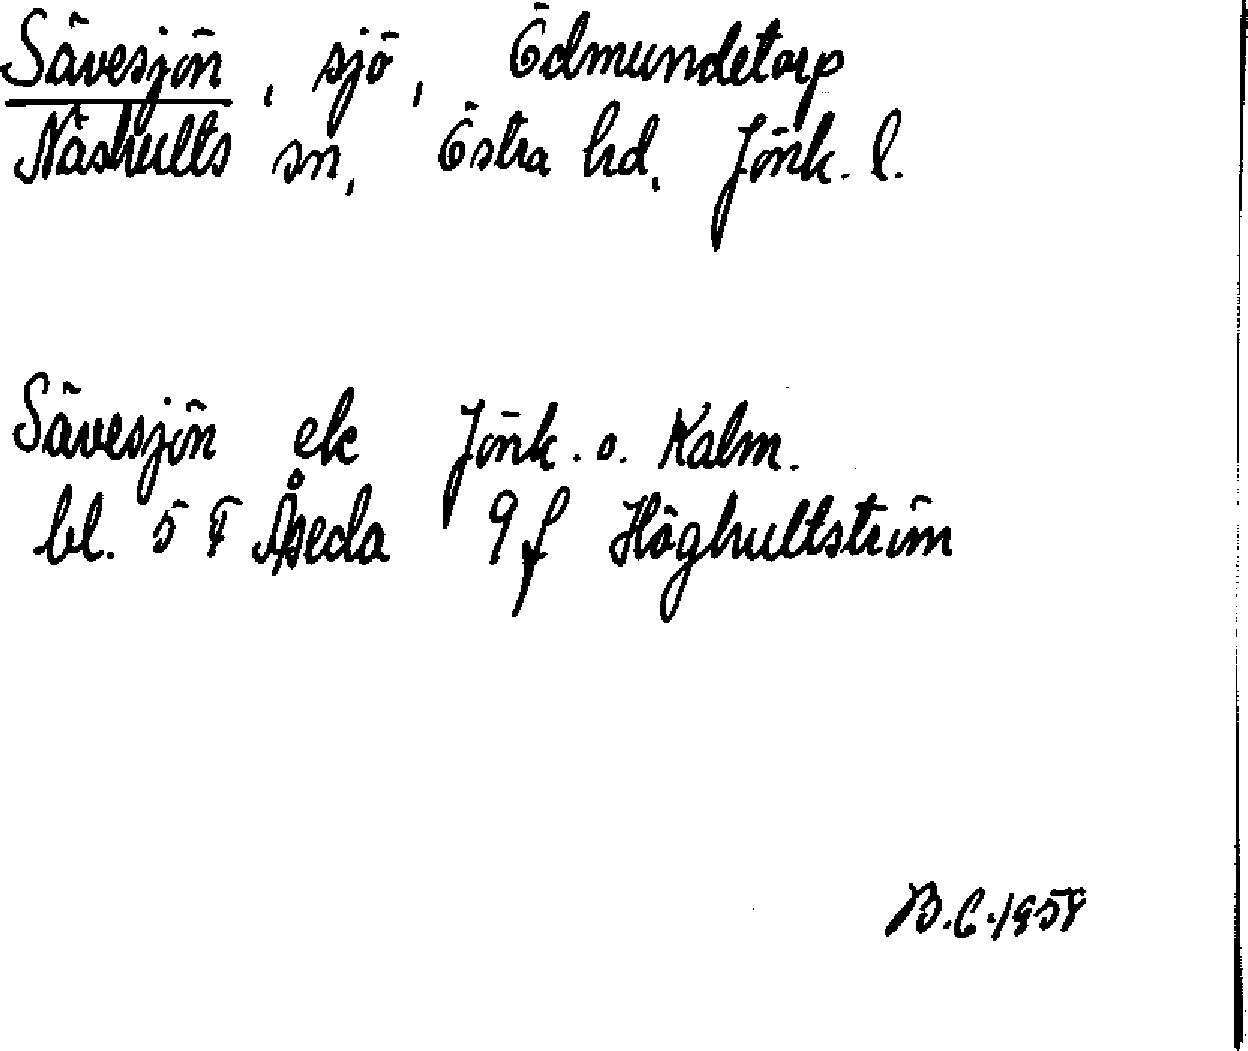 Sävesjön, sjö, Ödmundetorp
Näshults sn, Östra hd, Jönk. l.
Sävesjön ek Jönk. o. Kalm.
bl. 5 F Åseda 9 f Höghultström
B.C. 1958